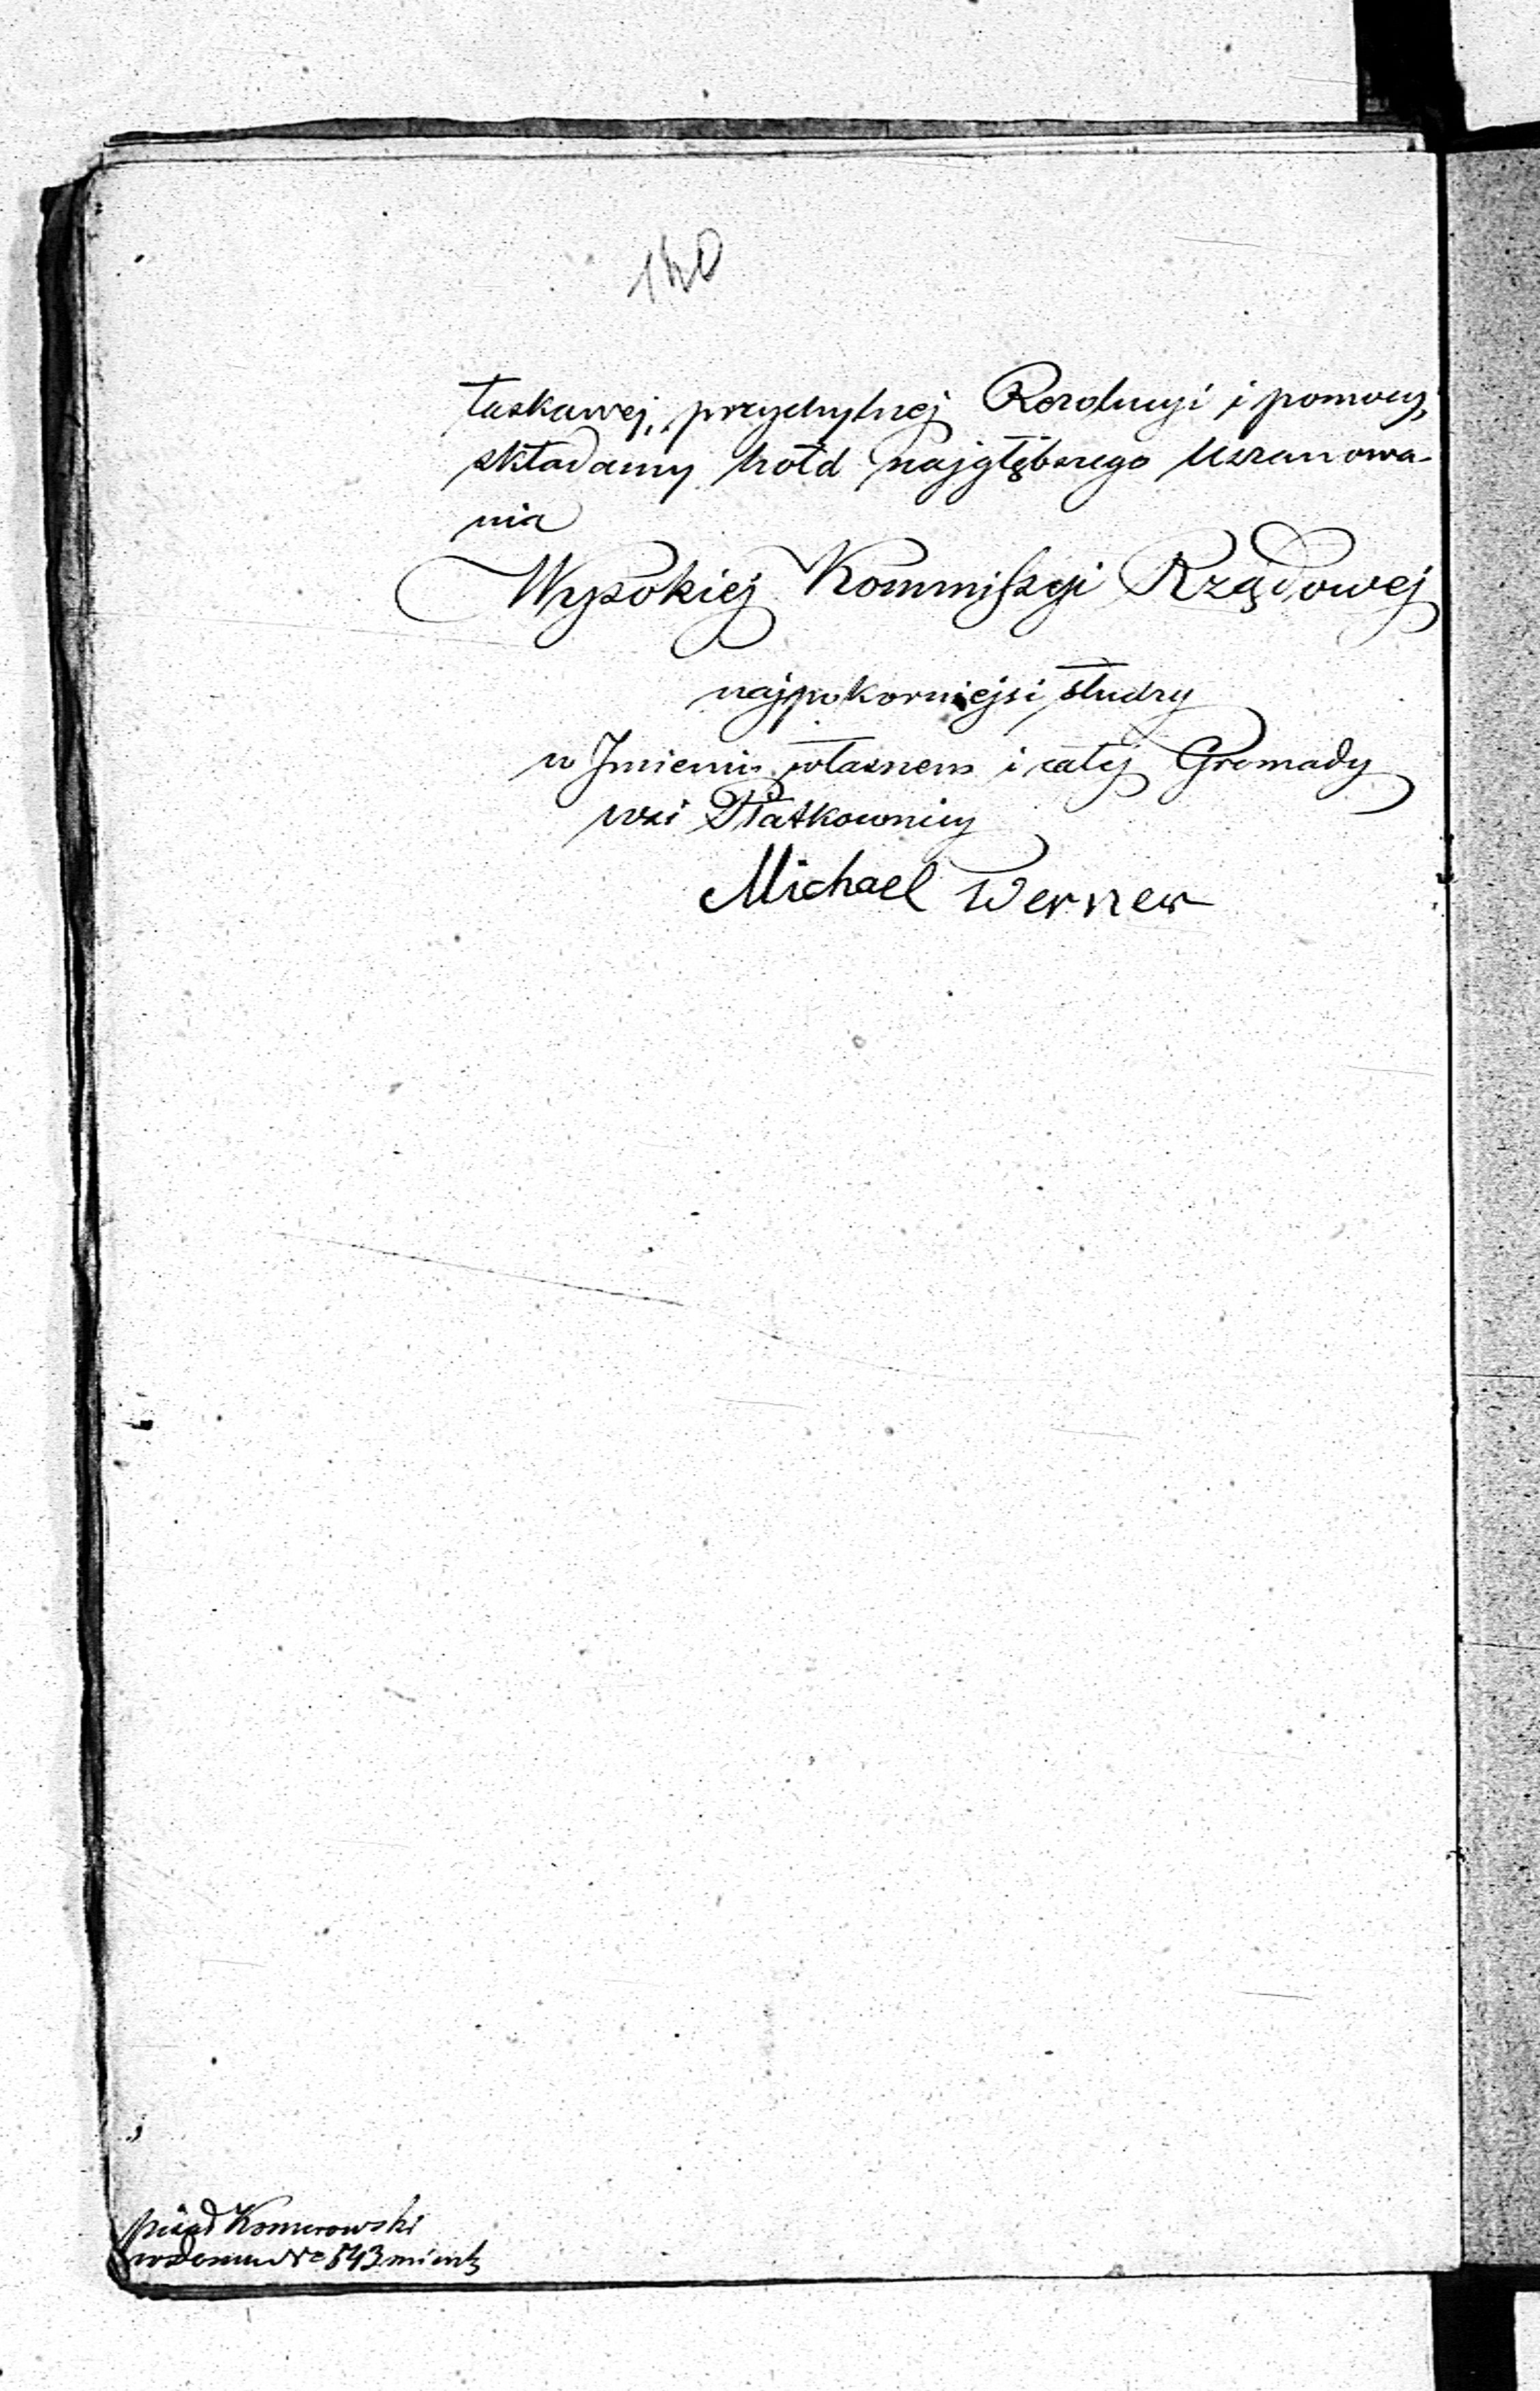 140
łaskawej, przychylnej Rezolucyi i pomocy,
składamy hołd najgłębszego uszanowa-
nia
Wysokiej Kommifsyi Rządowej
najpokorniejsi słudzy
w Imieniu własnem i całej Gromady
wsi Płatkownicy
Michael Werner
pisał Komorowski
w domu No 543 mieszk